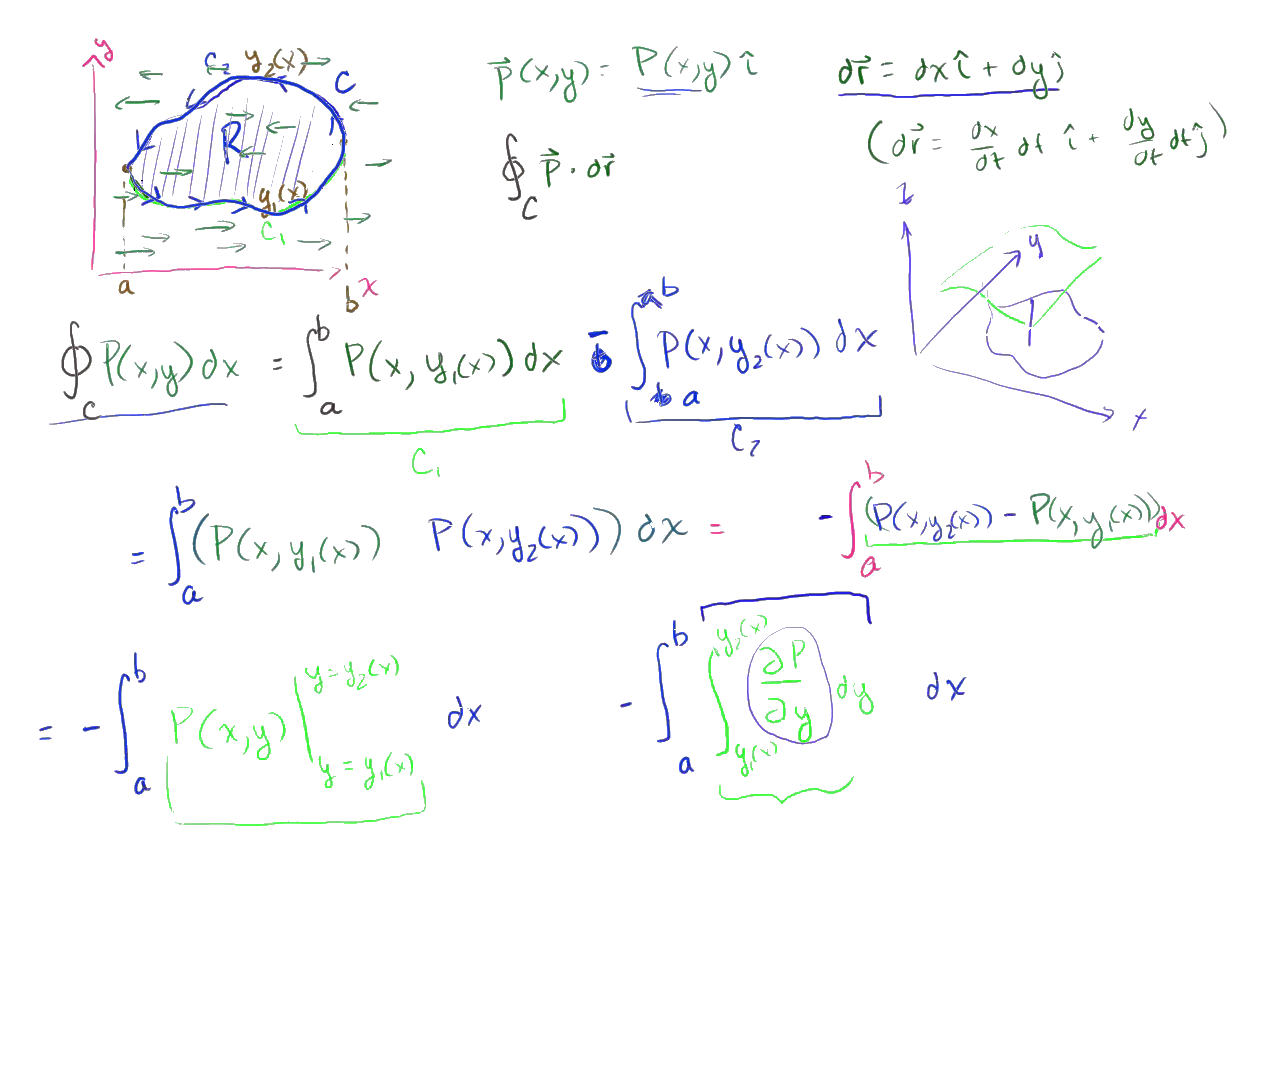 y
C₂ y₂(x)
C
R
y₁(x)
C₁
a
b x
P⃗(x,y) = P(x,y) î
dr⃗ = dx î + dy ĵ
(dr⃗ = dx/dt dt î + dy/dt dt ĵ)
∮_C P⃗ · dr⃗
z
y
x
∮_C P(x,y) dx = ∫_a^b P(x, y₁(x)) dx - ∫_a^b P(x, y₂(x)) dx
C₁
C₂
= ∫_a^b (P(x, y₁(x)) P(x, y₂(x))) dx = - ∫_a^b (P(x, y₂(x)) - P(x, y₁(x))) dx
= - ∫_a^b P(x,y) |_{y = y₁(x)}^{y = y₂(x)} dx - ∫_a^b ∫_{y₁(x)}^{y₂(x)} ∂P/∂y dy dx